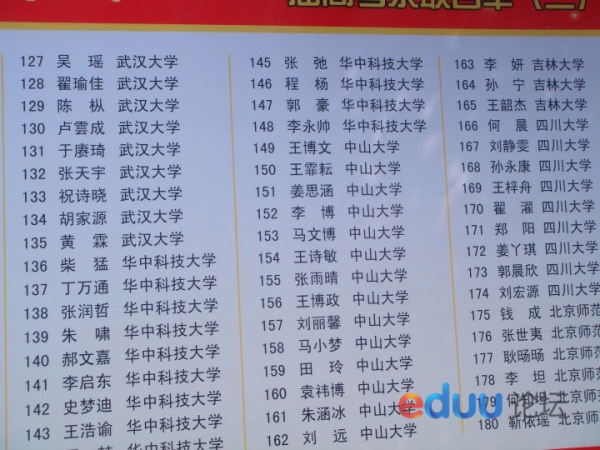 127 吴 瑶 武汉大学
128 翟瑜佳 武汉大学
129 陈 枞 武汉大学
130 卢雲成 武汉大学
131 于赓琦 武汉大学
132 张天宇 武汉大学
133 祝诗晓 武汉大学
134 胡家源 武汉大学
135 黄 霖 武汉大学
136 柴 猛 华中科技大学
137 丁万通 华中科技大学
138 张润哲 华中科技大学
139 朱 啸 华中科技大学
140 郝文嘉 华中科技大学
141 李启东 华中科技大学
142 史梦迪 华中科技大学
143 王浩谕 华中科技大学
145 张 弛 华中科技大学
146 程 杨 华中科技大学
147 郭 豪 华中科技大学
148 李永帅 华中科技大学
149 王博文 中山大学
150 王霏耘 中山大学
151 姜思涵 中山大学
152 李 博 中山大学
153 马文博 中山大学
154 王诗敏 中山大学
155 张雨晴 中山大学
156 王博政 中山大学
157 刘丽馨 中山大学
158 马小梦 中山大学
159 田 玲 中山大学
160 袁祎博 中山大学
161 朱涵冰 中山大学
162 刘 远 中山大学
163 李 妍 吉林大学
164 孙 宁 吉林大学
165 王韶杰 吉林大学
166 何 晨 四川大学
167 刘静雯 四川大学
168 孙永康 四川大学
169 王梓舟 四川大学
170 翟 濯 四川大学
171 郑 阳 四川大学
172 姜丫琪 四川大学
173 郭晨欣 四川大学
174 刘宏源 四川大学
175 钱 成 北京师范
176 张世夷 北京师范
177 耿旸旸 北京师范
178 李 坦 北京师范
179 何 北京师范
180 靳依瑶 北京师范
eduu论坛